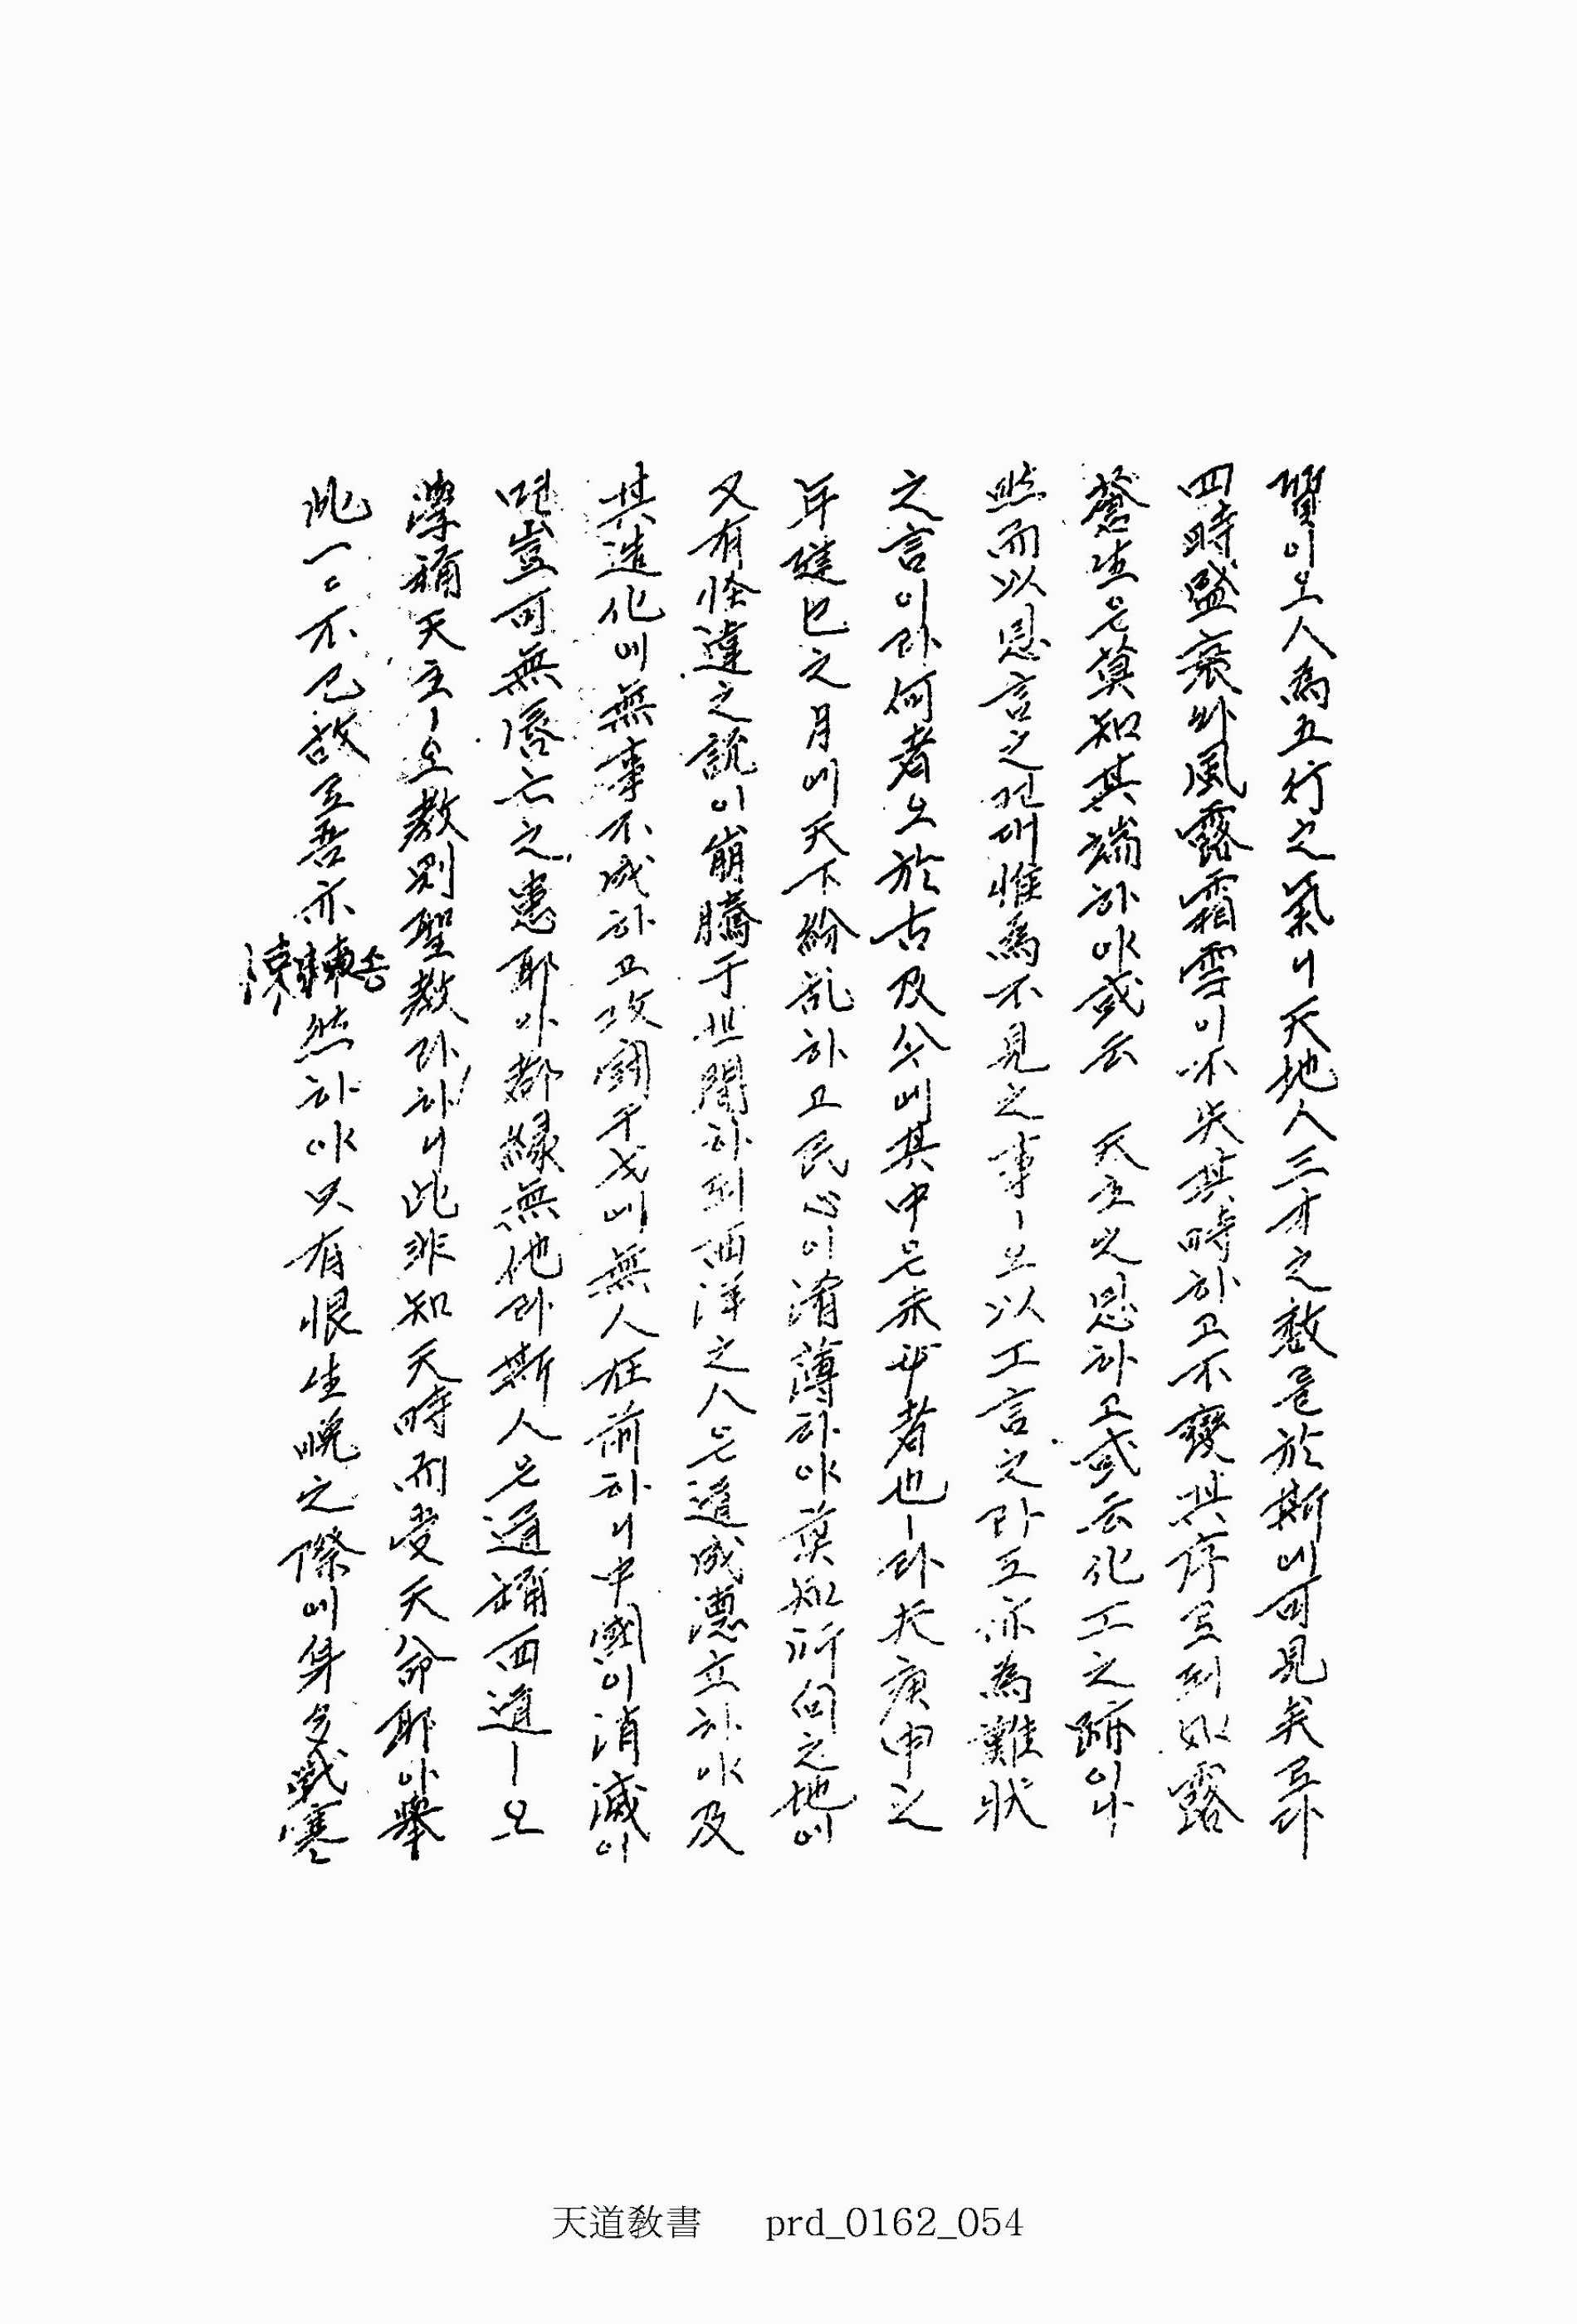 質이오人為五行之氣니天地人三才之數를於斯에可見矣로라
四時盛衰와風露霜雪이不失其時하고不變其序로되如露
蒼生은莫知其端하야或云 天主之恩하고或云化工之跡이나
然而以恩言之면惟為不見之事ㅣ오以工言之라도亦為難狀
之言이라何者오於古及今에其中은未必者也ㅣ라夫庚申之
年建巳之月에天下紛乱하고民心이淆薄하야莫知所向之地에
又有怪違之說이崩騰于世間하되西洋之人은道成德立하야及
其造化에無事不成하고攻鬪干戈에無人在前하니中國이消滅이
면豈可無唇亡之患耶아都緣無他라斯人은道稱西道ㅣ오
學稱天主ㅣ오教則聖教라하니此非知天時而受天命耶아擧
此一々不已故로吾亦悚然하야只有恨生晩之際에身多戰寒
悚
天道敎書 prd_0162_054